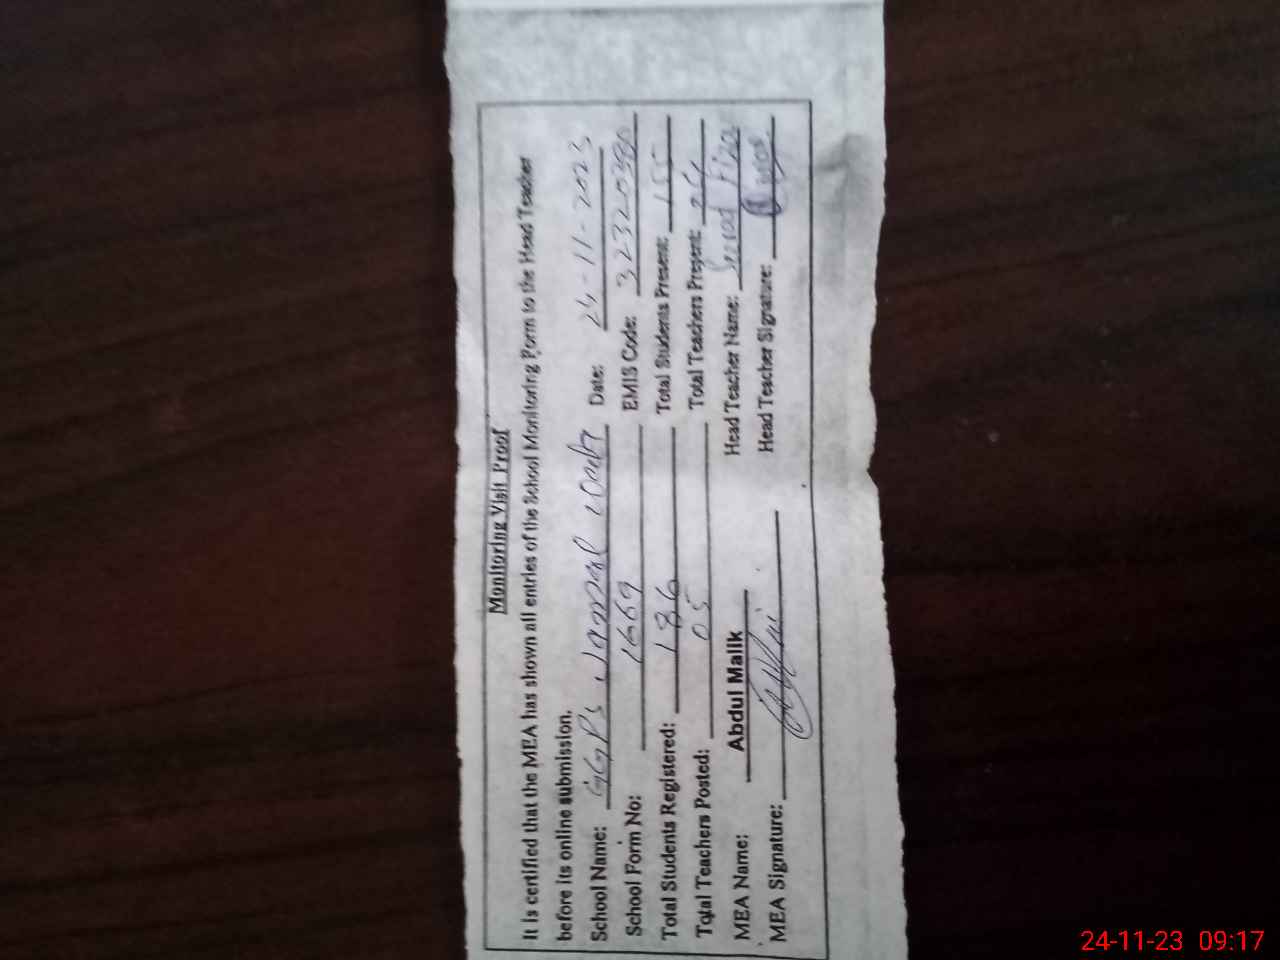 Monitoring Visit Proof
It is certified that the MEA has shown all entries of the School Monitoring Form to the Head Teacher
before its online submission.
School Name: GGPS Jamal wala Date: 24-11-2023
School Form No: 1669 EMIS Code: 32320380
Total Students Registered: 186 Total Students Present: 155
Total Teachers Posted: 05 Total Teachers Present: 04
MEA Name: Abdul Malik Head Teacher Name:
MEA Signature: Head Teacher Signature:
24-11-23 09:17